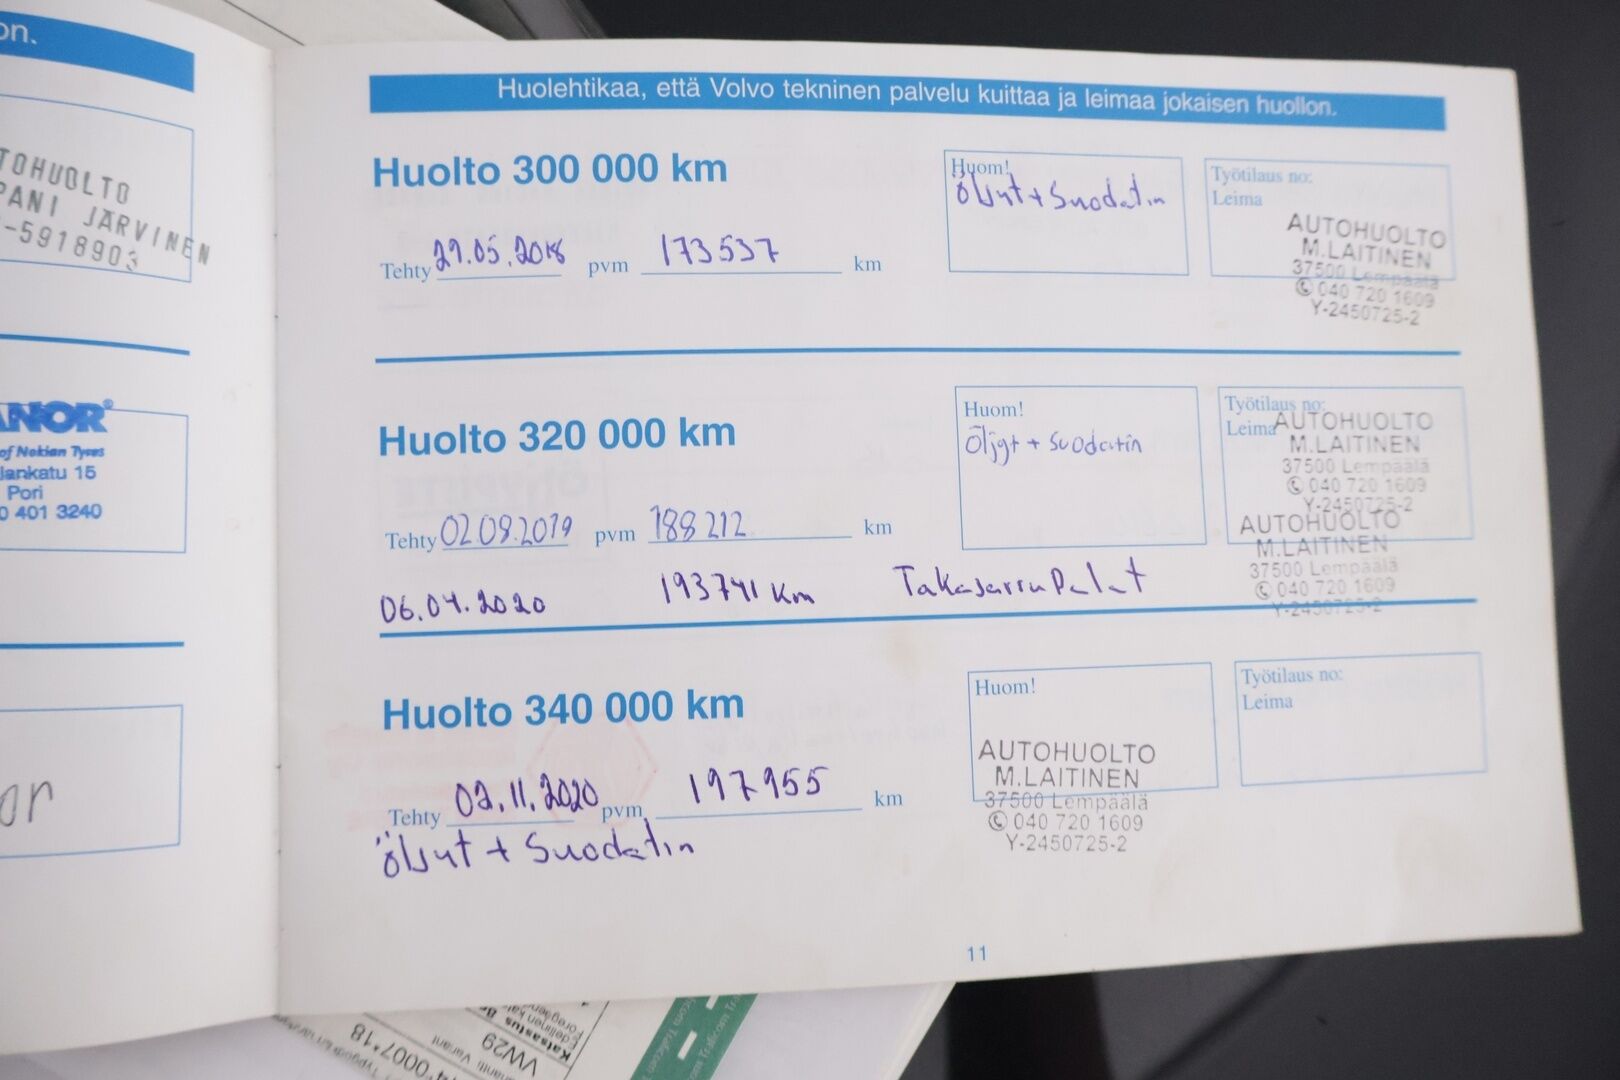 on.
TOHUOLTO
PANI JÄRVINEN
-5918903
ANOR®
of Nokian Tyres
lankatu 15
Pori
0 401 3240
or
Huolehtikaa, että Volvo tekninen palvelu kuittaa ja leimaa jokaisen huollon.
Huolto 300 000 km
Tehty 29.05.2018 pvm 173537 km
Huom!
Öljyt + Suodatin
Työtilaus no:
Leima
AUTOHUOLTO
M.LAITINEN
37500 Lempäälä
✆ 040 720 1609
Y-2450725-2
Huolto 320 000 km
Tehty 02.08.2019 pvm 188 212 km
Huom!
Öljyt + Suodatin
Työtilaus no:
Leima
AUTOHUOLTO
M.LAITINEN
37500 Lempäälä
✆ 040 720 1609
Y-2450725-2
06.04.2020 193741 Km TakaJarruPalat
AUTOHUOLTO
M.LAITINEN
37500 Lempäälä
✆ 040 720 1609
Y-2450725-2
Huolto 340 000 km
Tehty 02.11.2020 pvm 197955 km
Öljyt + Suodatin
Huom!
AUTOHUOLTO
M.LAITINEN
37500 Lempäälä
✆ 040 720 1609
Y-2450725-2
Työtilaus no:
Leima
11
Katsastus
VW29
Variant
0007*18